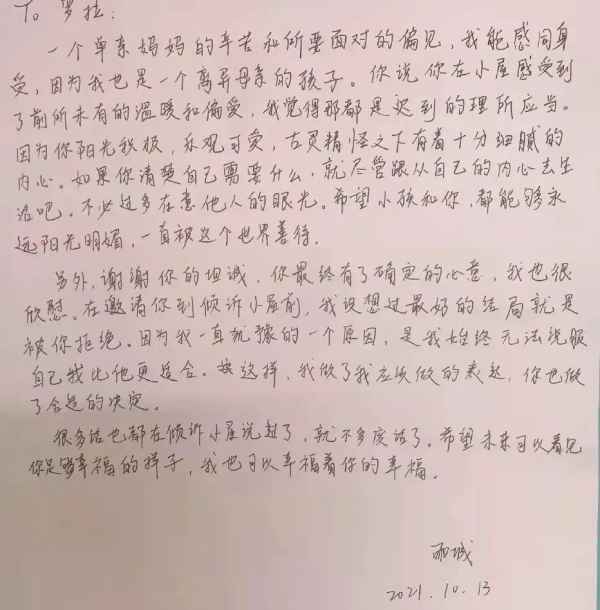 To 罗拉:
一个单亲妈妈的辛苦和所要面对的偏见,我能感同身
受,因为我也是一个离异母亲的孩子。你说你在小屋感受到
了前所未有的温暖和偏爱,我觉得那都是迟到的理所应当。
因为你阳光积极,乐观可爱,古灵精怪之下有着十分细腻的
内心。如果你清楚自己需要什么,就尽管跟从自己的内心去生
活吧。不必过多在意他人的眼光。希望小孩和你,都能够永
远阳光明媚,一直被这个世界善待。
另外,谢谢你的坦诚,你最终有了确定的心意,我也很
欣慰。在邀请你到倾诉小屋前,我设想过最好的结局就是
被你拒绝。因为我一直犹豫的一个原因,是我始终无法说服
自己我比他更适合。按这样,我做了我应该做的表达,你也做
了合适的决定。
很多话也都在倾诉小屋说过了,就不多废话了。希望未来可以看见
你足够幸福的样子,我也可以幸福着你的幸福。
城
2021.10.13